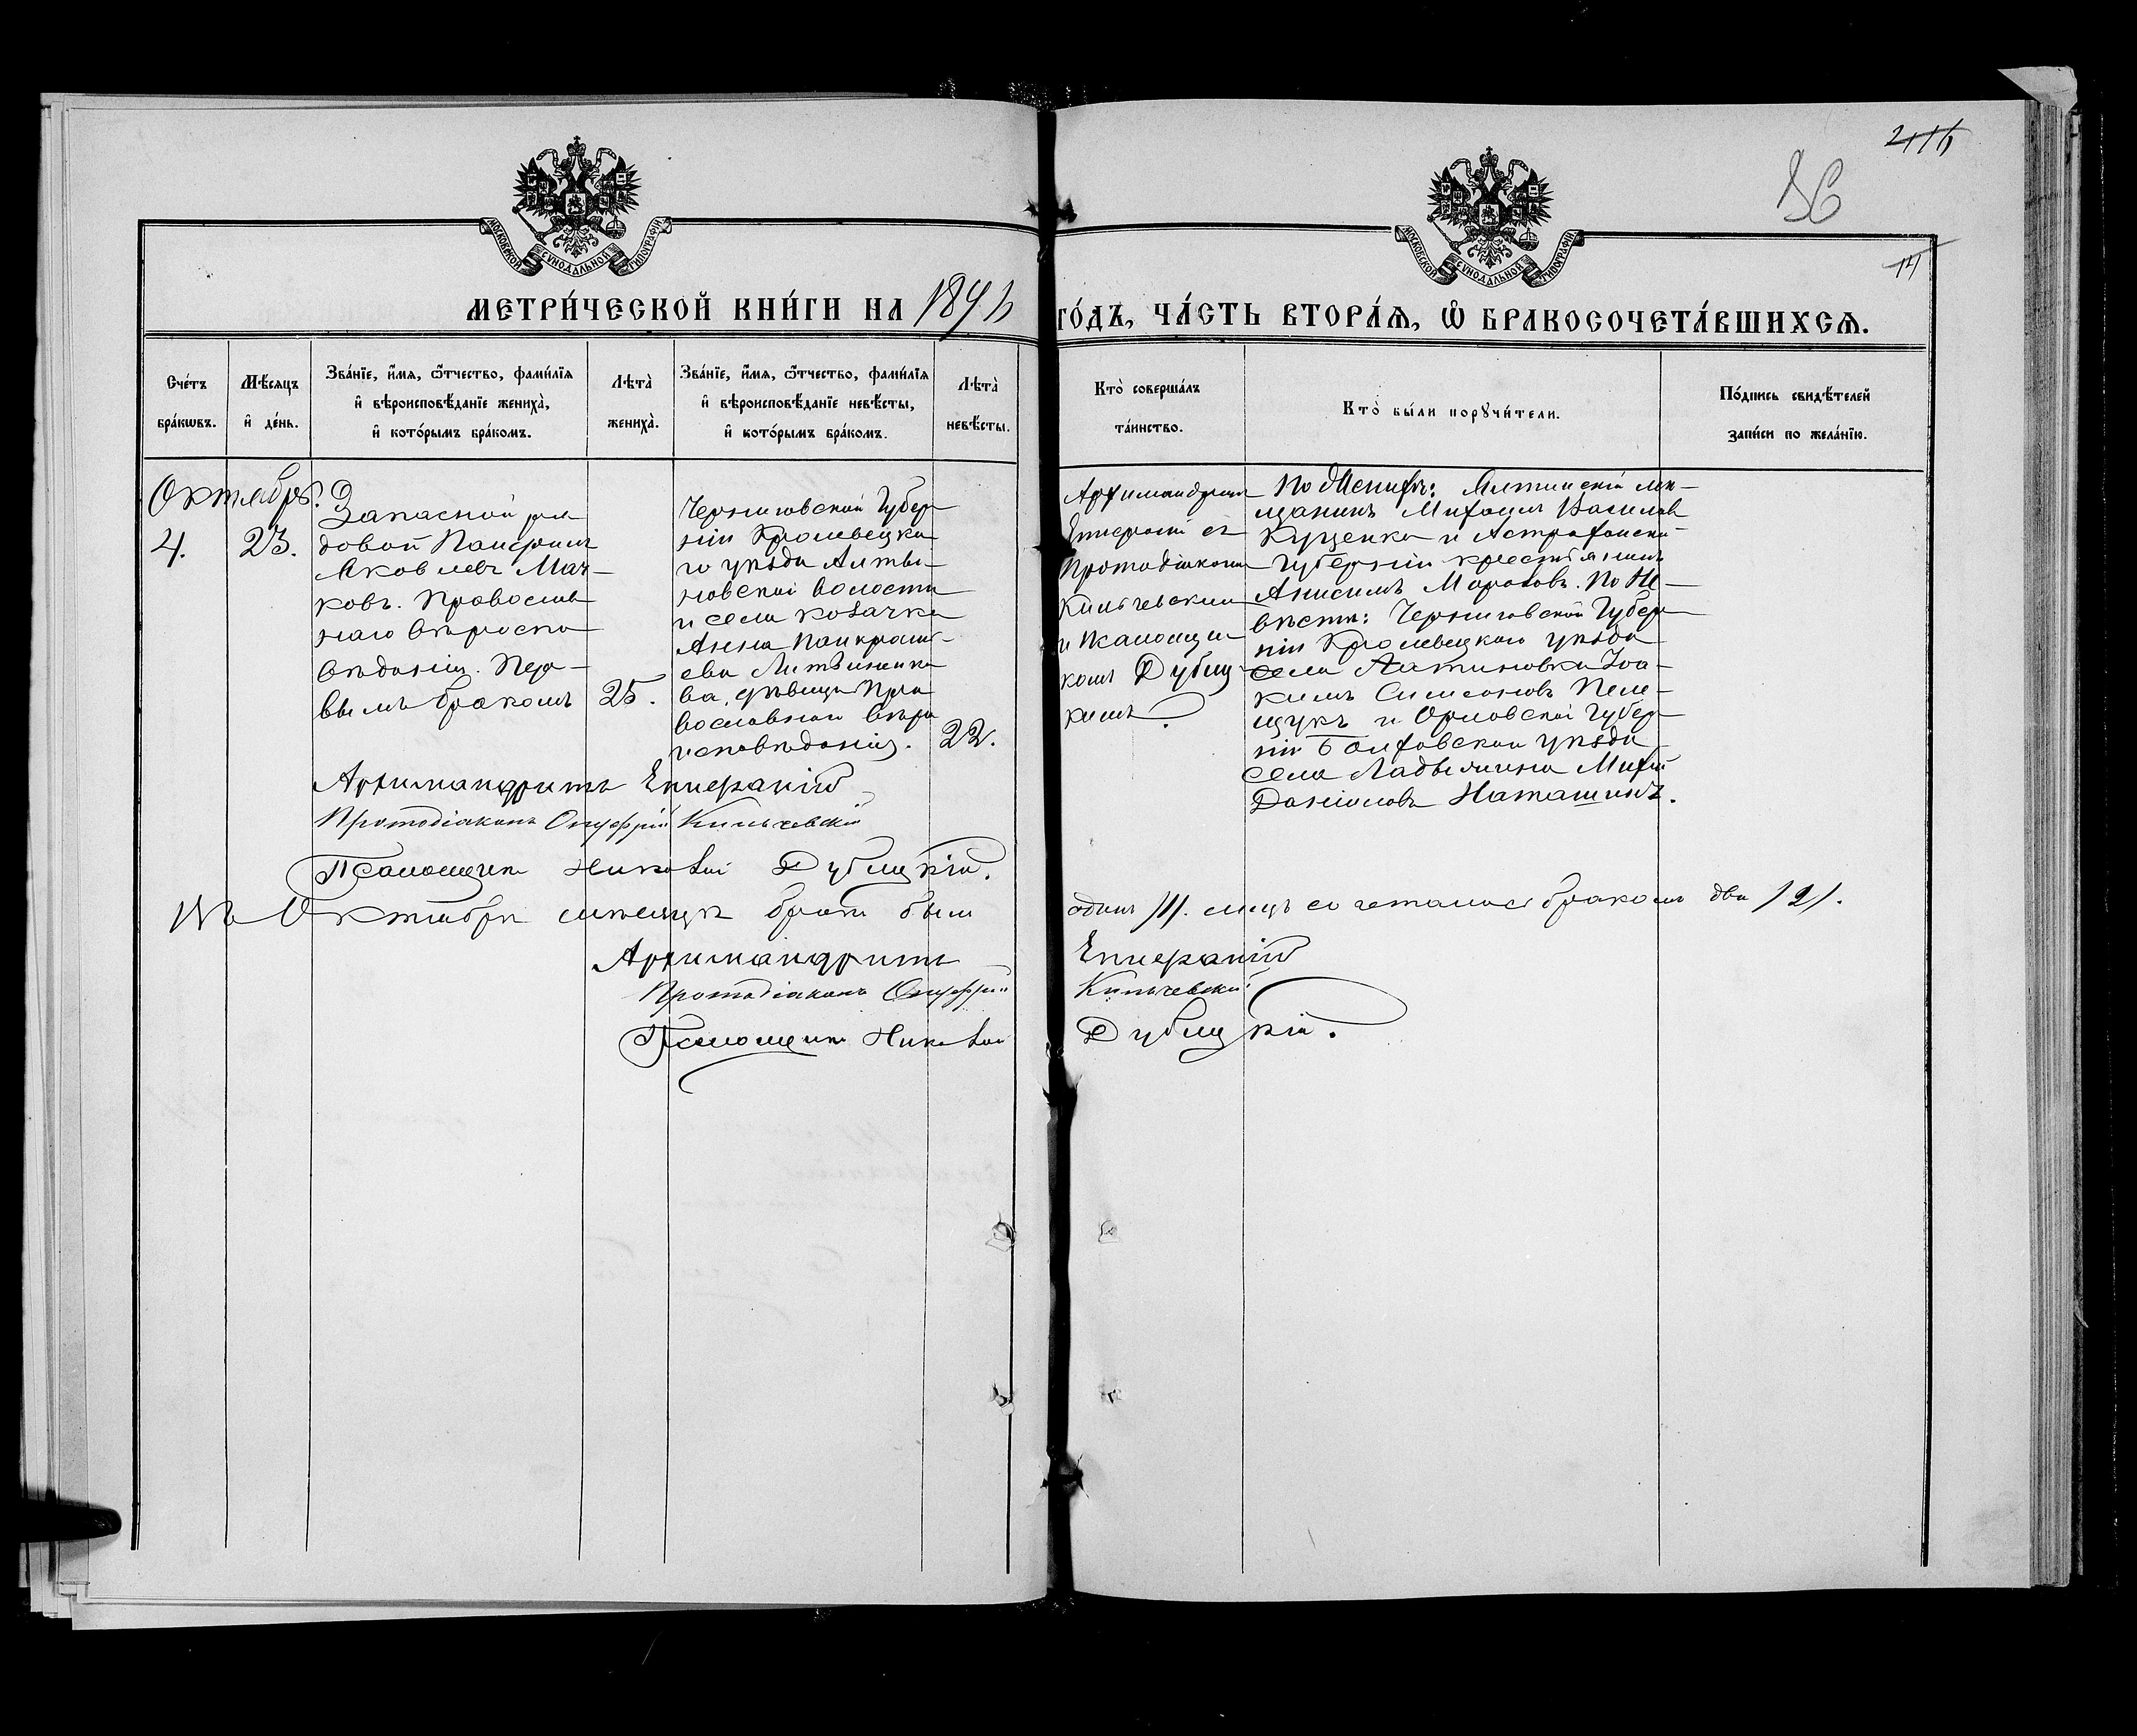 МОСКОВСКОЙ СѴНОДАЛЬНОЙ ТИПОГРАФІИ
МОСКОВСКОЙ СѴНОДАЛЬНОЙ ТИПОГРАФІИ
36
МЕТРИ́ЧЕСКОЙ КНИ́ГИ НА 189
ГО́ДЪ, ЧА́СТЬ ВТОРА́Ѧ, Ѽ БРАКОСОЧЕТА́ВШИХСѦ.
Сче́тъ бра́кѡвъ.
Мѣ́сяцъ и҆ де́нь.
Зва́нїе, и҆́мѧ, ѻ҆́тчество, фами́лїѧ
и҆ вѣроисповѣ́данїе жениха̀,
и҆ кото́рымъ бра́комъ.
Лѣта̀ жениха̀.
Зва́нїе, и҆́мѧ, ѻ҆́тчество, фами́лїѧ
и҆ вѣроисповѣ́данїе невѣ́сты,
и҆ кото́рымъ бра́комъ.
Лѣта̀ невѣ́сты.
Кто̀ соверша́лъ
та́инство.
Кто̀ бы́ли порꙋчи́тели.
По́дпись свидѣ́телей
за́писи по жела́нїю.
Октябрь.
4.
23.
Запасной ря
довой
Яковлевъ Мач
ковъ. Православ
наго вѣроиспо
вѣданія. Пер
вымъ бракомъ
25.
Черниговской Губер
ніи Кролевецка
го уѣзда Алты
новской волости
и села козачка
Анна Панкрать
ева Литвиненко
ва, дѣвица Пра
вославнаго вѣро
исповѣданія.
22.
Архимандритъ
Епифаній съ
Протодіакономъ
Кульчевскимъ
и Псаломщи
комъ Дубиц
кимъ.
По Женихѣ: Ялтинскій мѣ
щанинъ Михаилъ Васильев
Куценко и Астраханской
Губерніи крестьянинъ
Анисимъ Морозовъ. По Не
вѣстѣ: Черниговской Губер
ніи Кролевецкаго уѣзда
села Иоа
кимъ Симеоновъ Пеле
щукъ и Орловской Губер
ніи Болховскаго уѣзда
села
Даніиловъ Наташинъ.
Архимандритъ Епифаній
Протодіаконъ Онуфрій Кульчевскій
Псаломщикъ Николай Дубицкій.
Въ Октябрѣ мѣсяцѣ бракъ былъ одинъ /1/. лицъ сочеталось бракомъ два /2/.
Архимандритъ Епифаній
Протодіаконъ Онуфрій Кульчевскій
Псаломщикъ Николай Дубицкій.